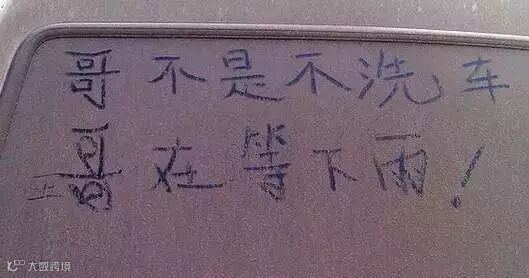 哥不是不洗车
哥在等下雨!
大数跨境